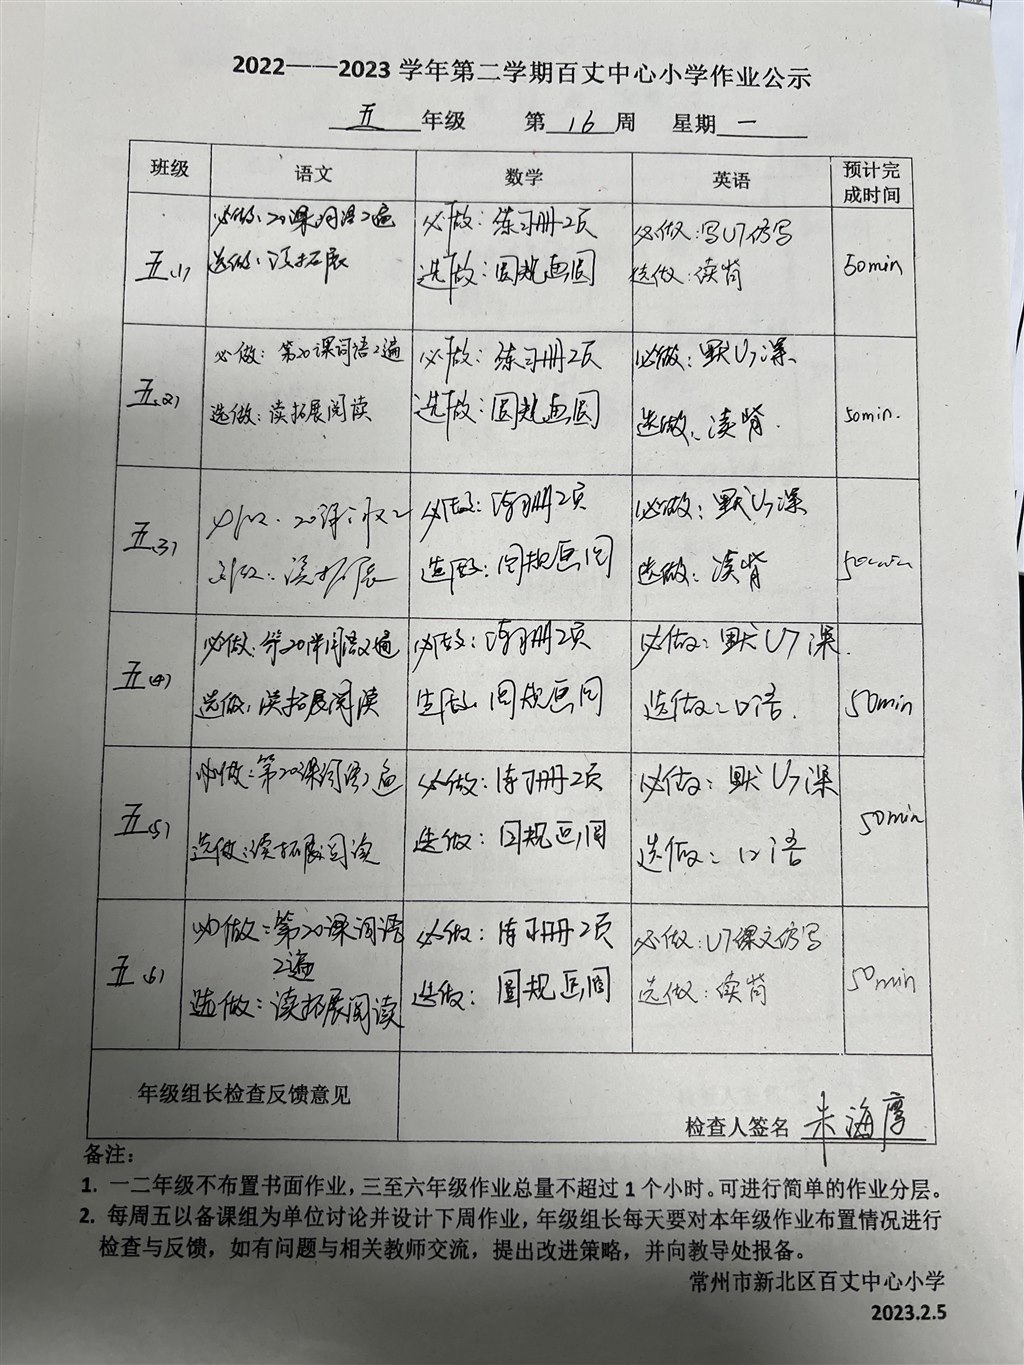 2022——2023学年第二学期百丈中心小学作业公示
五 年级 第 16 周 星期 一
班级 语文 数学 英语 预计完成时间
五(1) 必做:20课词语2遍 必做:练习册2页 必做:写U7仿写 50min
选做:读拓展 选做:圆规画圆 选做:读背
五(2) 必做:第20课词语2遍 必做:练习册2页 必做:默U7课 50min.
选做:读拓展阅读 选做:圆规画圆 选做:读背.
五(3) 必做:20课词2 必做:练习册2页 必做:默U7课 50min
选做:读拓展 选做:圆规画圆 选做:读背
五(4) 必做:第20课词语2遍 必做:练习册2页 必做:默U7课. 50min
选做:读拓展阅读 选做:圆规画圆 选做:口语.
五(5) 必做:第20课词语2遍 必做:练习册2页 必做:默U7课 50min
选做:读拓展阅读 选做:圆规画圆 选做:口语
五(6) 必做:第20课词语 必做:练习册2页 必做:U7课文仿写 50min
2遍
选做:读拓展阅读 选做:圆规画圆 选做:读背
年级组长检查反馈意见
检查人签名 朱海
备注:
1. 一二年级不布置书面作业,三至六年级作业总量不超过1个小时。可进行简单的作业分层。
2. 每周五以备课组为单位讨论并设计下周作业,年级组长每天要对本年级作业布置情况进行
检查与反馈,如有问题与相关教师交流,提出改进策略,并向教导处报备。
常州市新北区百丈中心小学
2023.2.5